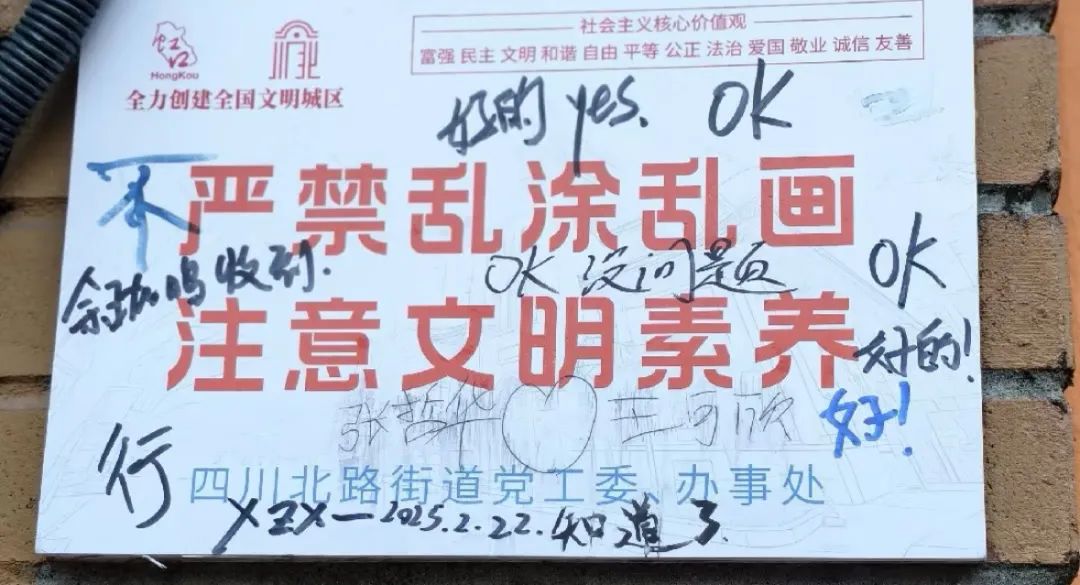 社会主义核心价值观
富强 民主 文明 和谐 自由 平等 公正 法治 爱国 敬业 诚信 友善
虹口
HongKou
全力创建全国文明城区
好的 yes. OK
不
严禁乱涂乱画
收到.
OK 没问题
OK
注意文明素养
好的!
张哲华 王可欣
好!
行
四川北路街道党工委、办事处
XZX—2025.2.22.知道了.